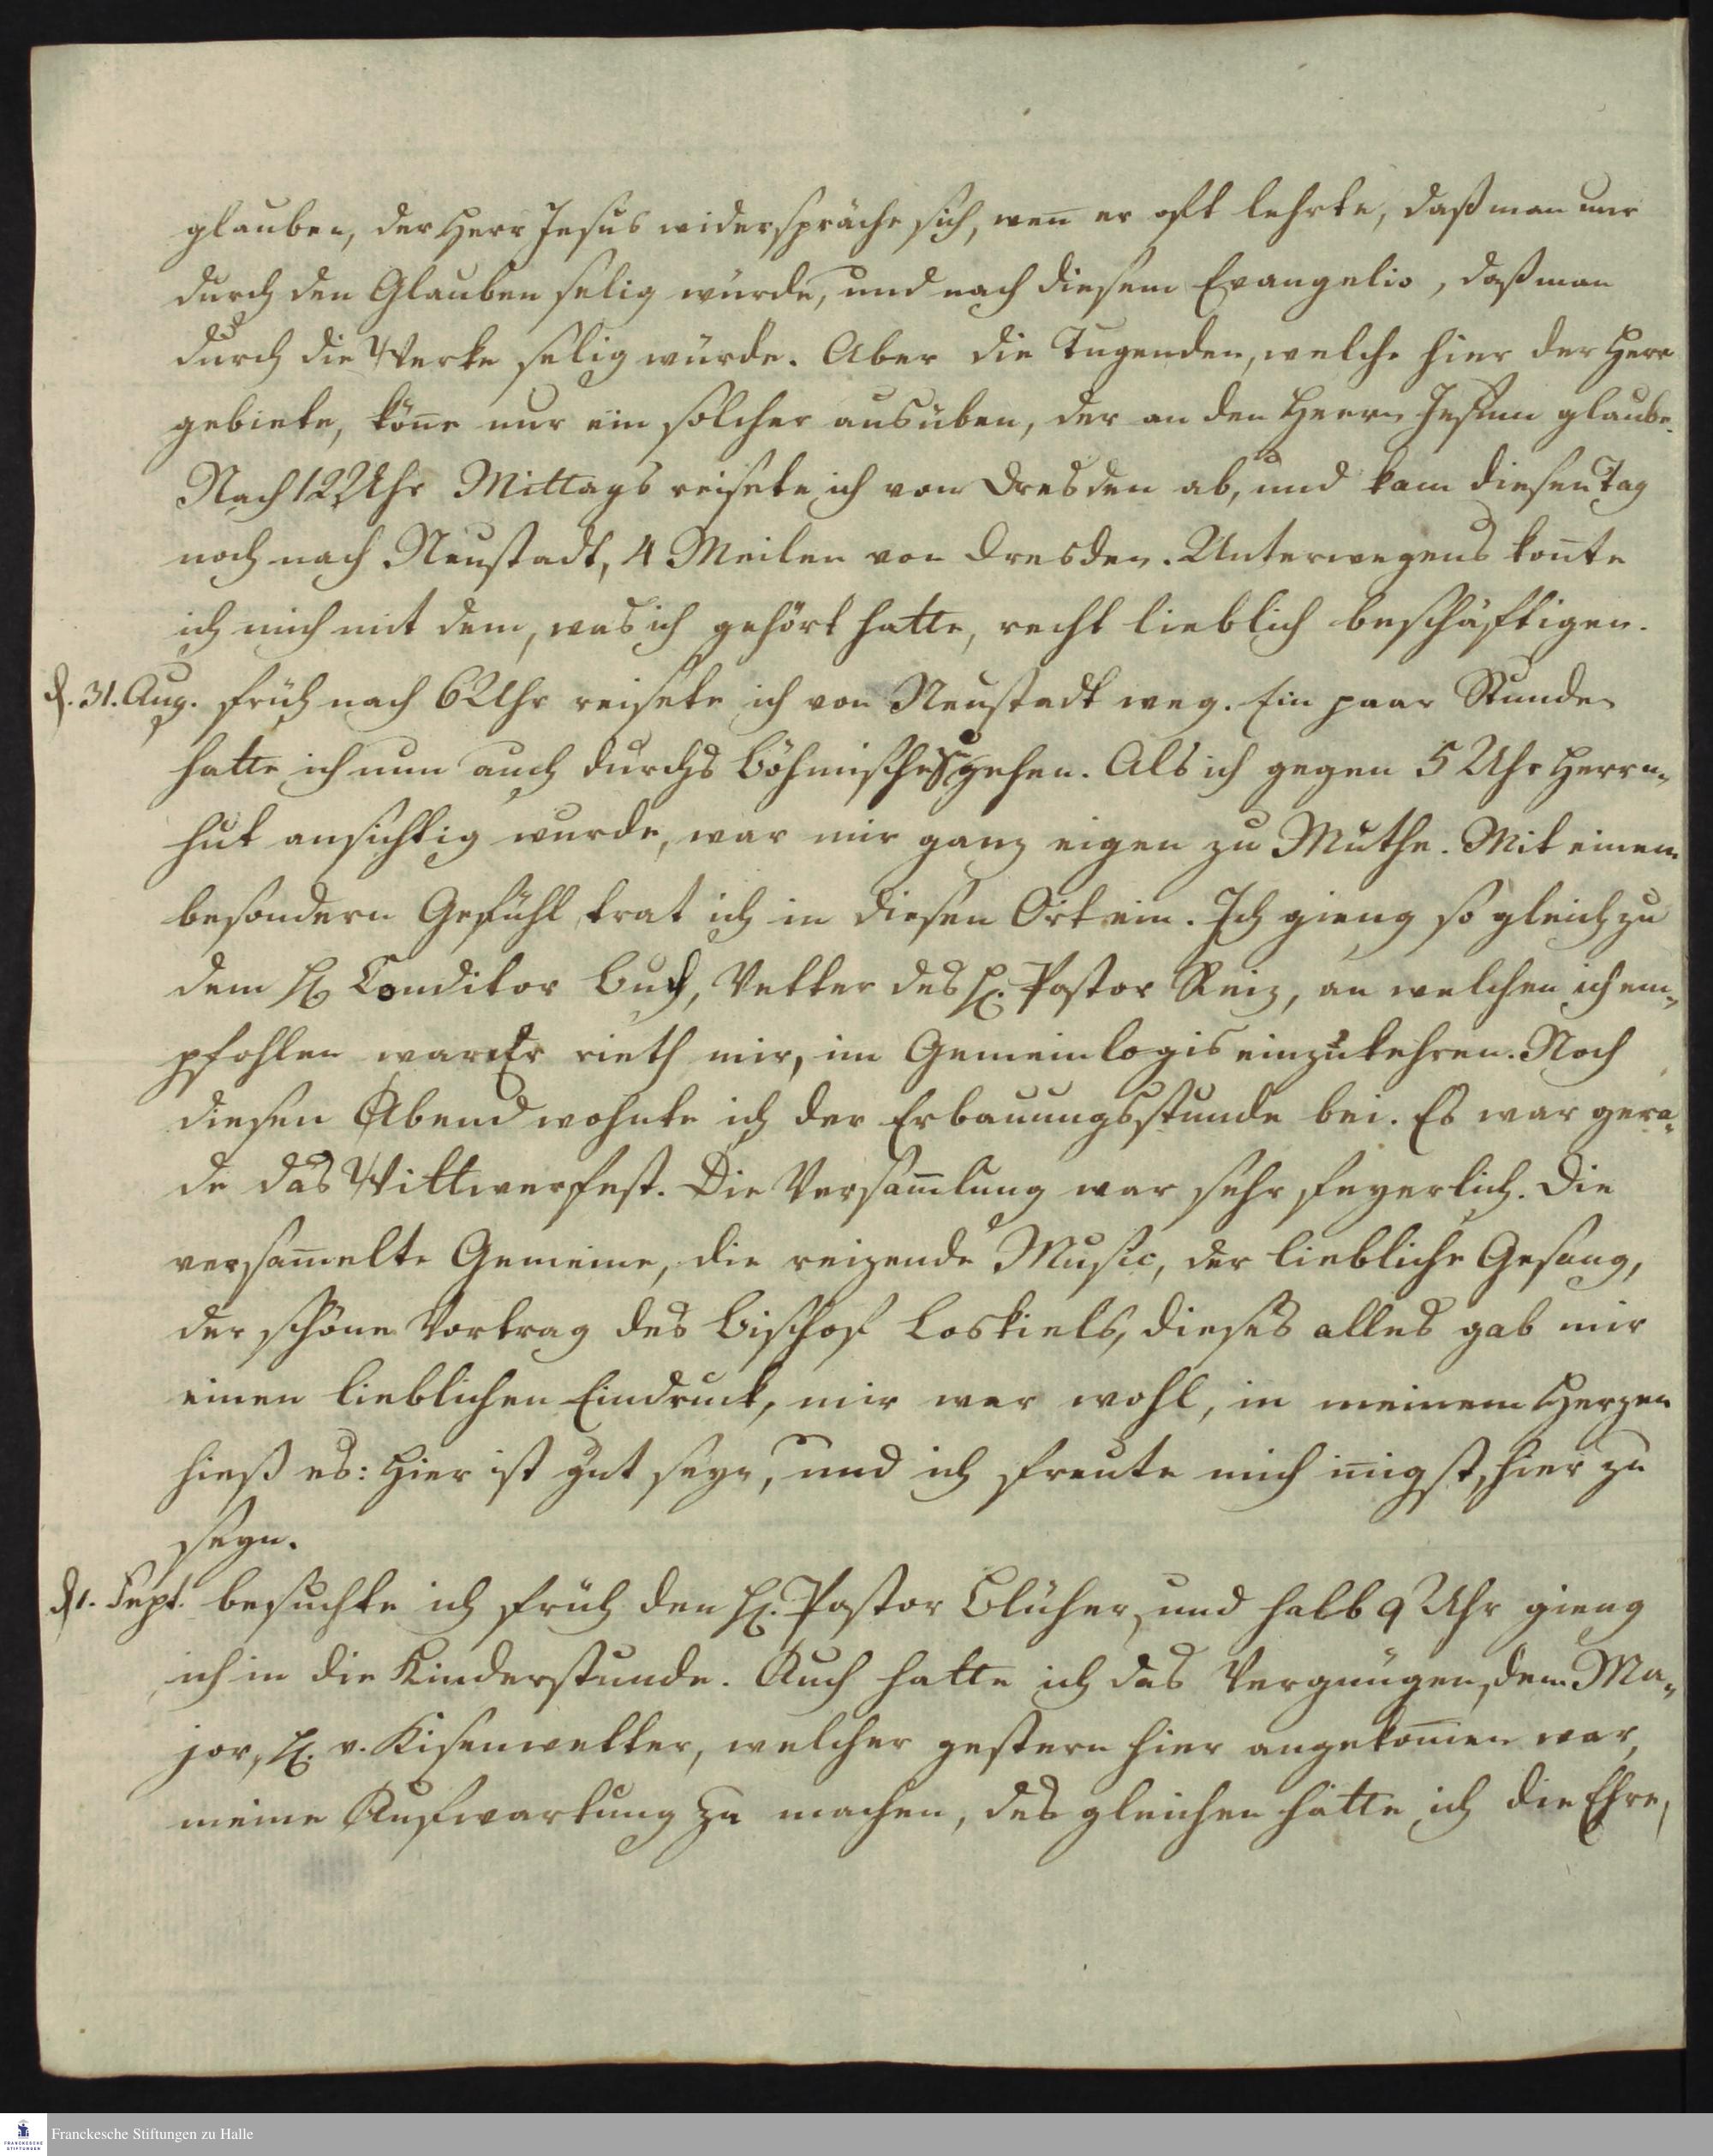 glauben, der Herr Jesus widerspräche sich, weñ er oft lehrte, daß man nur
durch den Glauben selig würde, und nach diesem Evangelio, daß man
durch die Werke selig würde. Aber die Tugenden, welche hier der Herr
gebiete, köñe nur ein solcher ausüben, der an den Herrn Jesum glaube.
Nach 12 Uhr Mittags reisete ich von Dresden ab, und kam diesen Tag
noch nach Neustadt, 4 Meilen von Dresden. Unterwegens koñte
ich mich mit dem, was ich gehört hatte, recht lieblich beschäftigen.
d. 31. Aug. früh nach 6 Uhr reisete ich von Neustadt weg. Ein paar Stunden
hatte ich nun auch durchs Böhmische zu gehen. Als ich gegen 5 Uhr Herrn„
hut ansichtig wurde, war mir ganz eigen zu Muthe. Mit einem
besondern Gefühl trat ich in diesen Ort ein. Ich gieng so gleich zu
dem H. Conditor Buck, Vetter des H. Pastor Reiz, an welchen ich em„
pfohlen war. Er rieth mir, im Gemeinlogis einzukehren. Noch
diesen Abend wohnte ich der Erbauungsstunde bei. Es war gera„
de das Wittwerfest. Die Versam̃lung war sehr feyerlich. Die
versam̃elte Gemeine, die reizende Music, der liebliche Gesang,
der schöne Vortrag des Bischof Loskiels, dieses alles gab mir
einen lieblichen Eindruck, mir war wohl, in meinem Herzen
hieß es: Hier ist gut seyn, und ich freute mich iñigst, hier zu
seyn.
d. 1. Sept. besuchte ich früh den H. Pastor Blüher, und halb 9 Uhr gieng
ich in die Kinderstunde. Auch hatte ich das Vergnügen, dem Ma„
jor, H. v. Kisenwetter, welcher gestern hier angekom̃en war,
meine Aufwartung zu machen, des gleichen hatte ich die Ehre,
Franckesche Stiftungen zu Halle
FRANCKESCHE
STIFTUNGEN